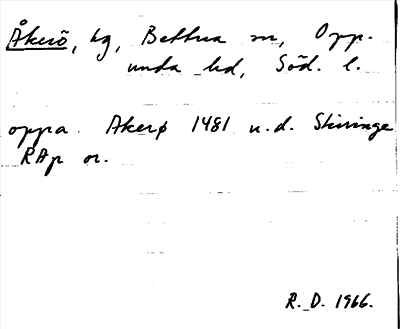 Åkerö, hg, Bettna sn, Opp.
unda hd, Söd. l.
oppa Akerø 1481 u.d. Skiringe
RAp or.
R. D. 1966.